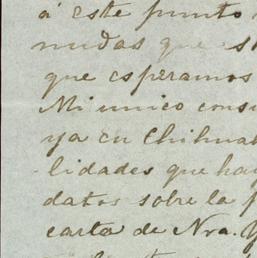 á este punto
mudas que s
que esperamos
Mi unico cons
ya en Chihuah
lidades que hay
datos sobre la p
carta de Nra. Y